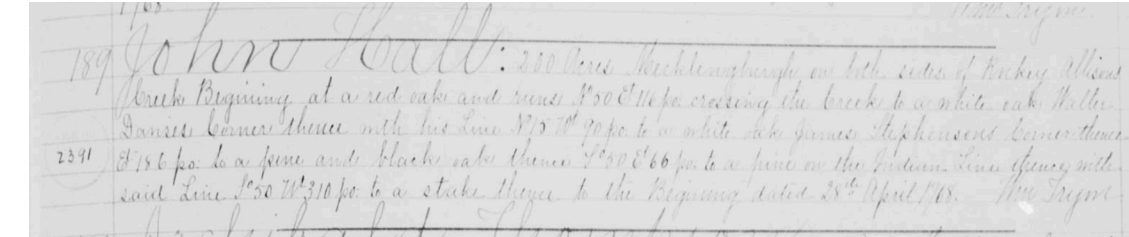 1768. Wm Tryon.
189 John Hall: 200 Acres Mecklengburgh on both sides of Rockey Allisons
Creek Begining at a red oak and runs No 50 Et 116 po. crossing the Creek to a white oak Walter
Davises Corner thence with his Line No 15 Wt 90 po. to a white oak James Stephensons Corner thence
2391 Et 186 po: to a pine and black oak thence So 50 Et 66 po: to a pine on the Indian Line thence with
said Line So 50 Wt 310 po: to a stake thence to the Begining dated 28th April 1768. Wm Tryon